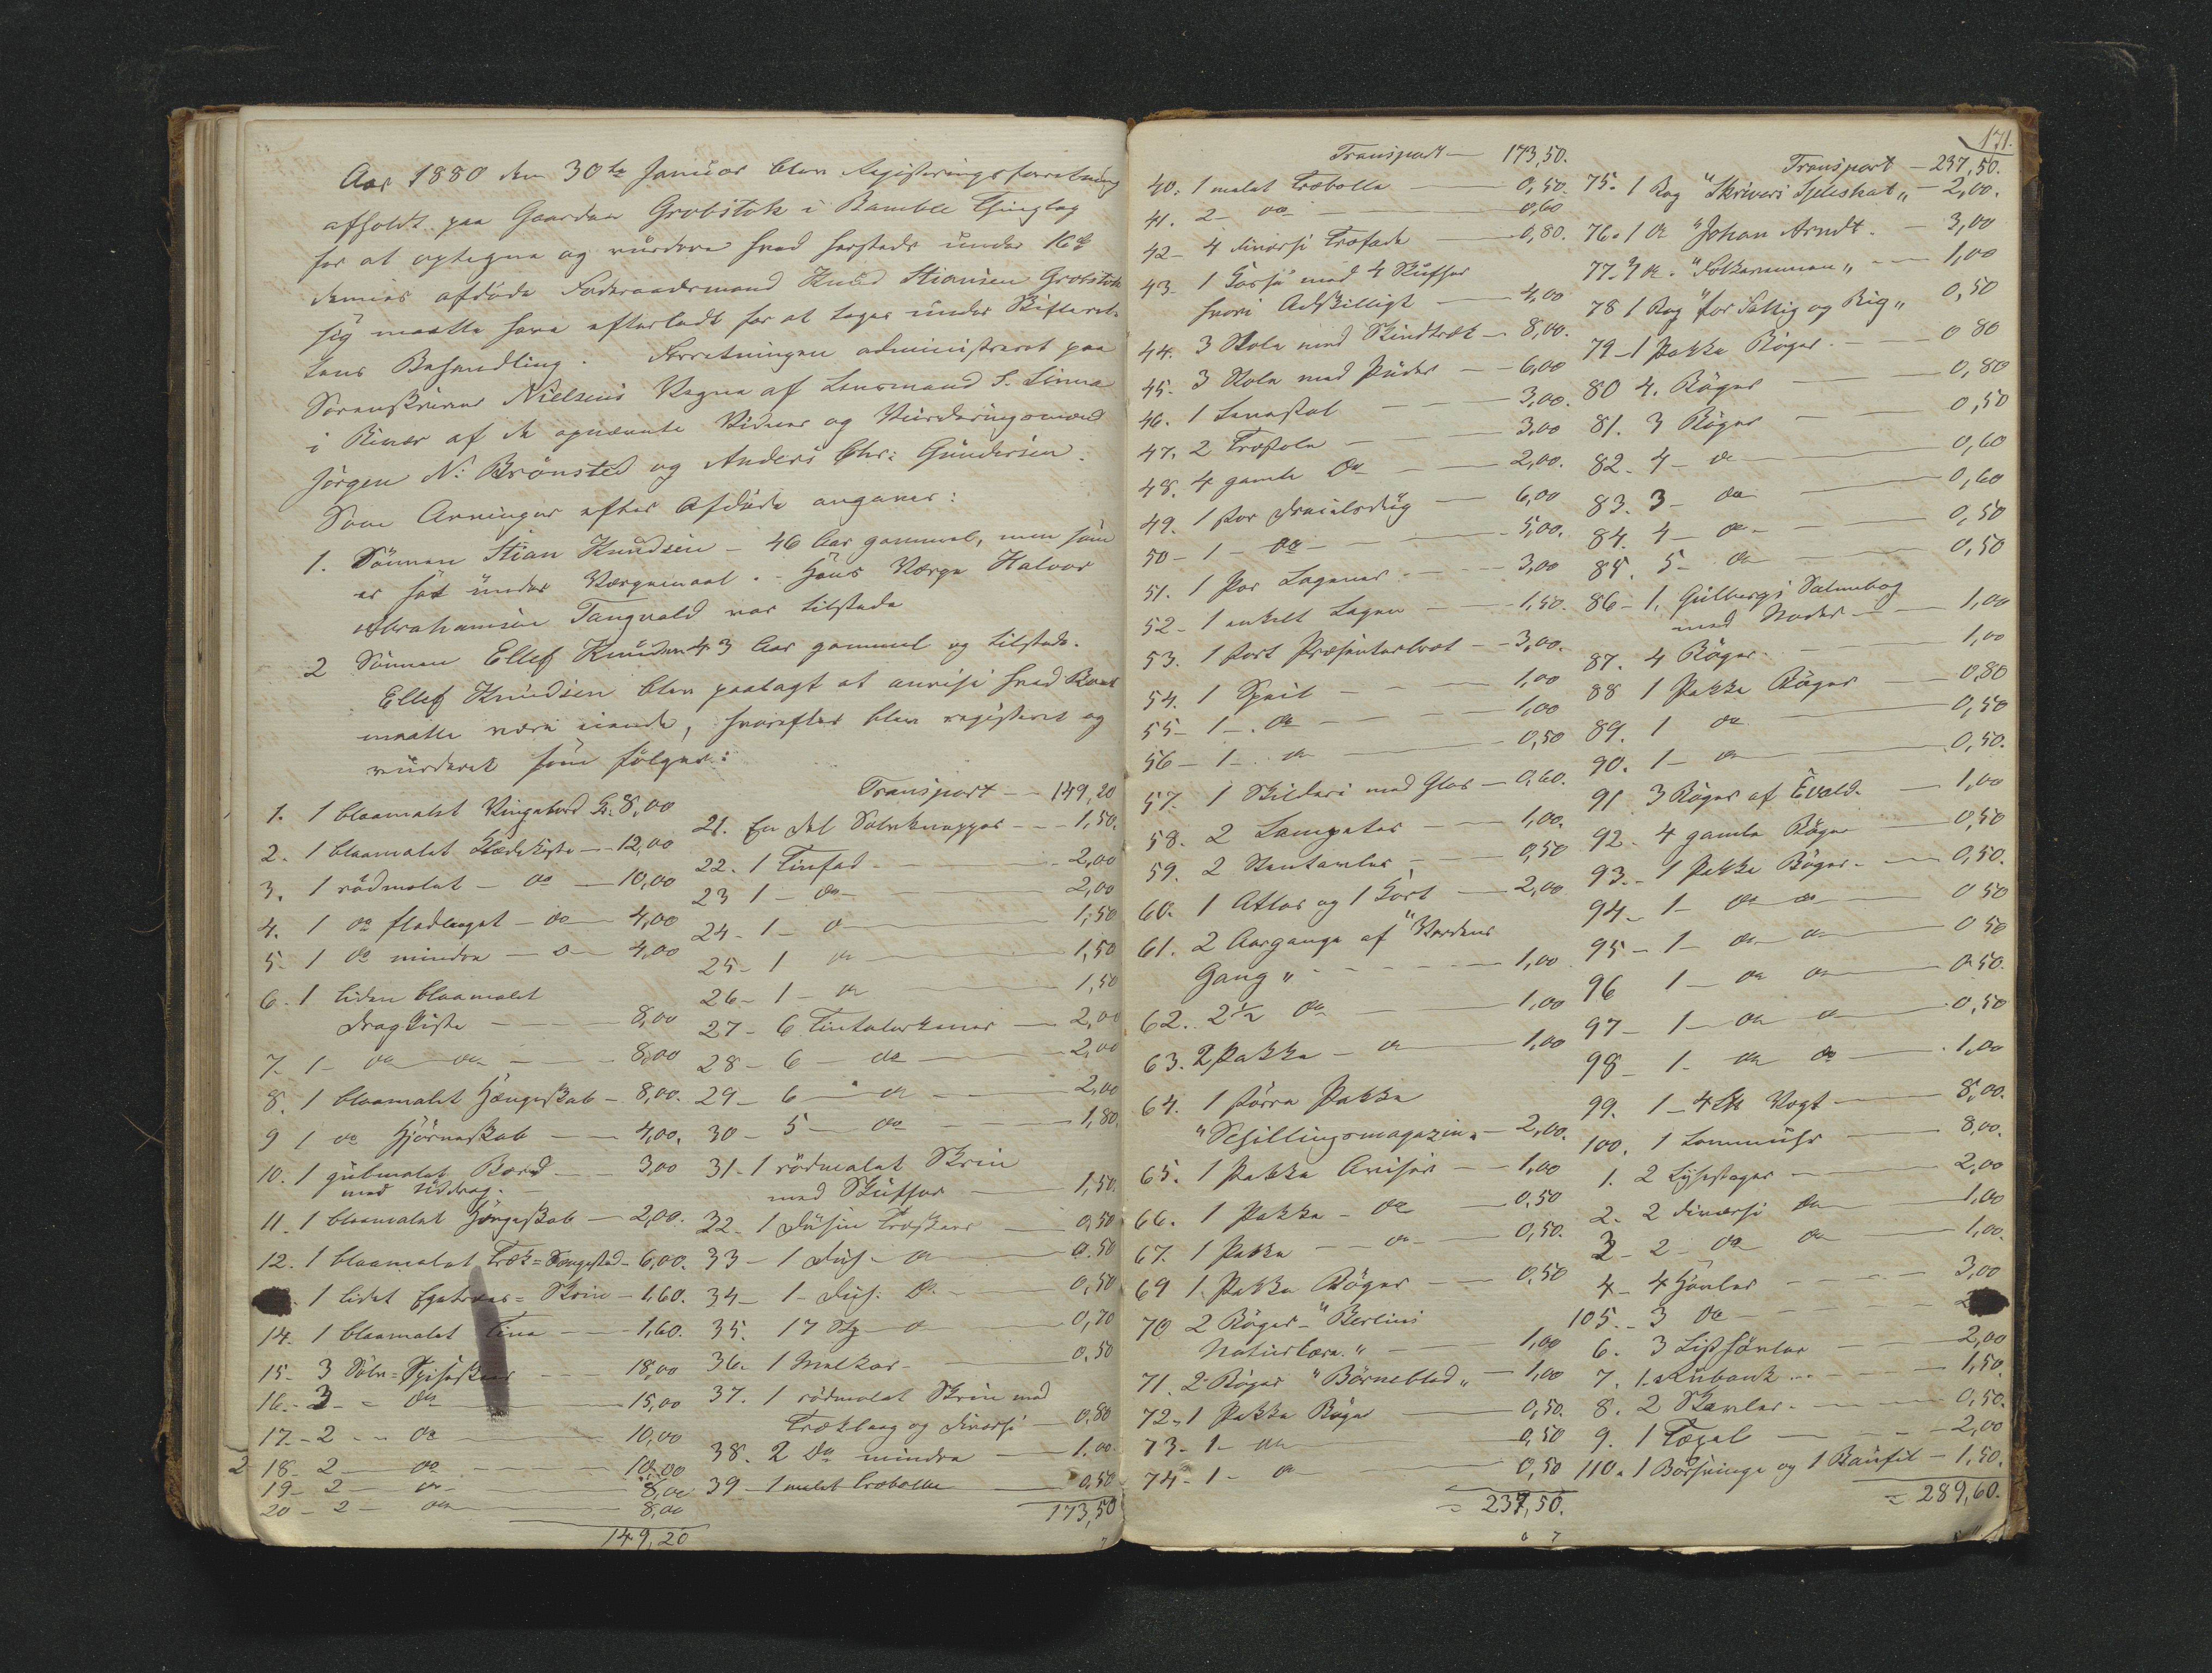 Aar 1880 den 30te Januar blev Registreringsforretning
afholdt paa Gaarden Grobstok i Bamble Thinglag
for at optegne og vurdere hvad hersteds under 16de
dennes afdøde Føderaadsmand Knud Stiansen Grobstok
sig maatte have efterladt for at tages under Skifteret-
tens Behandling. Forretningen administreret paa
Sorenskriver Nielsens Vegne af Lensmand S. Linna
i Rinær af de opnævnte Vidner og Vurderingsmænd
Jørgen N: Brønsted og Anders Chr: Gundersen.
Som Arvinger efter Afdøde angaves:
1. Sønnen Stian Knudsen - 46 Aar gammel, men som
er sat under Værgemaal. - Hans Værge Halvor
Abrahamsen Tangvald var tilstede
2 Sønnen Ellef Knudsen 43 Aar gammel og tilstede.
Ellef Knudsen blev paalagt at anvise hvad Boet
maatte være eiende, hvorefter blev registreret og
vurderet som følger:
1. 1 blaamalet Vingebord Kr. 8,00
2. 1 blaamalet Klædekiste - 12,00
3. 1 rødmalet - do - 10,00
4. 1 do fladlaaget - do - 4,00
5. 1 do mindre - do - 4,00
6. 1 liden blaamalet
Dragkiste - 8,00
7. 1 - do do - 8,00
8. 1 blaamalet Hængeskab - 8,00.
9 1 do Hjørneskab - 4,00.
10. 1 gulmalet Bord - 3,00
med Uddrag.
11. 1 blaamalet Hængeskab - 2,00.
12. 1 blaamalet Træk=Sengested - 6,00.
1 lidet Egetræes=Skrin - 1,60.
14. 1 blaamalet Tine - 1,60.
15 - 3 Sølv=Spiseskeer - 18,00
16. - 3 - do - 15,00
17. - 2 - do - 10,00
2 18 - 2 - do - 10,00
19 - 2 - do - 8,00
20 - 2 - do 8,00
149,20
Transport - 149,20
21. En Del Sølvknapper - 1,50.
22. 1 Tinfad - 2,00
23 1 - do - 2,00
24 - 1 - do - 1,50
25 - 1 do - 1,50
26 - 1 - do - 1,50
27 - 6 Tintalerkener - 2,00
28 - 6 - do - 2,00
29 - 6 - do - 2,00
30 - 5 - do - 1,80.
31 - 1 rødmalet Skrin
med Skuffer - 1,50.
32 - 1 Dusin Træskeer - 0,50
33 - 1 Dus. - do - 0,50
34 - 1 - Dus: do - 0,50
35. 17 St. - do - 0,70
36. 1 - 0,50
37. 1 rødmalet Skrin med
og diverse - 0,80
38. 2 Do mindre - 1.00
39 - 1 malet Træbolle - 0,50
173,50
171.
Transport - 173,50.
40. 1 malet Træbolle - 0,50.
41. 2 - do - 0,60
42 - 4 diverse Træfade - 0,80.
43. 1 med 4 Skuffer
hvori Adskilligt - 4,00
44. 3 Stole med Skindtræk - 8,00.
45. 3 Stole med Puder - 6,00
46. 1 Lænestol - 3,00.
47. 2 Træstole - 3,00
48. 4 gamle Do - 2,00.
49. 1 Par - 6,00
50 - 1 - do - 5,00.
51. 1 Par Lagener - 3,00
52 - 1 enkelt Lagen - 1,50.
53. 1 sort Præsenterbret - 3,00.
54. 1 Speil - 1,00
55 - 1 - do - 1,00
56 - 1 - do - 0,50
57. 1 Skilderi med Glas - 0,60.
58. 2 Lampeter - 1,00.
59. 2 Stentavler - 0,50
60. 1 Atlas og 1 Kort - 2,00
61. 2 Aargange af "Verdens
Gang" - 1,00
62. 2 ½ do - 1,00
63. 2 Pakke - do - 1,00
64. 1 større Pakke
"Schillingsmagazin" - 2,00.
65. 1 Pakke Aviser - 1,00
66. 1 Pakke - do - 0,50
67. 1 Pakke - do - 0,50.
69 1. Pakke Bøger - 0,50
70 2 Bøger - "Berlins
Naturlære." - 1,00
71. 2 Bøger "Børneblad" - 1,00
72 - 1 Pakke Bøger - 0,50.
73 - 1 - do - 0,50
74 - 1 - do - 0,50
= 237,50.
Transport - 237,50.
75. 1 Bog "Skrivers Sjeleskat" - 2,00.
76. 1 do "Johan Arndt. - 3,00
77. do. "Folkevennen" - 1,00
78 1 Bog "for Fattig og Rig" 0,50
79 - 1 Pakke Bøger - 0 80
80 4. Bøger - 0,80
81. 3 Bøger - 0,50
82. 4 - do - 0,60
83. 3 - do - 0,60
84. 4 - do - 0,50
85. 5 - do - 0,50
86 - 1, Gulbergs Salmebog
med Noder - 1,00
87. 4 Bøger - 1,00
88 1 Pakke Bøger - 0,80
89. 1 do - 0,50
90. 1 - do - 0,50.
91. 3 Bøger af Evald. - 1,00
92. 4 gamle Bøger - 0,50
93. - 1 Pakke Bøger. - 0,50.
94 - 1 - do do - 0 50
95 - 1 - do do - 0 50
96 1 - do do - 0,50.
97 - 1 - do do - 0,50
98 - 1 - do do - 1,00
99. 1 - Vægt - 8,00.
100. 1 Lommeuhr - 8,00.
1. 2 Lysestager - 2,00
2. 2 diverse do - 1,00
3 - 2 - do do - 1,00.
4 - 4 Høvler - 3,00
105. - 3 do -
6. 3 Listhøvler - 2,00
7. 1 Skrubank - 1,50.
8. 2 - 0,50.
9. 1 - 2,00
110. 1 Borsvinge og 1 Baufil - 1,50.
= 289,60.